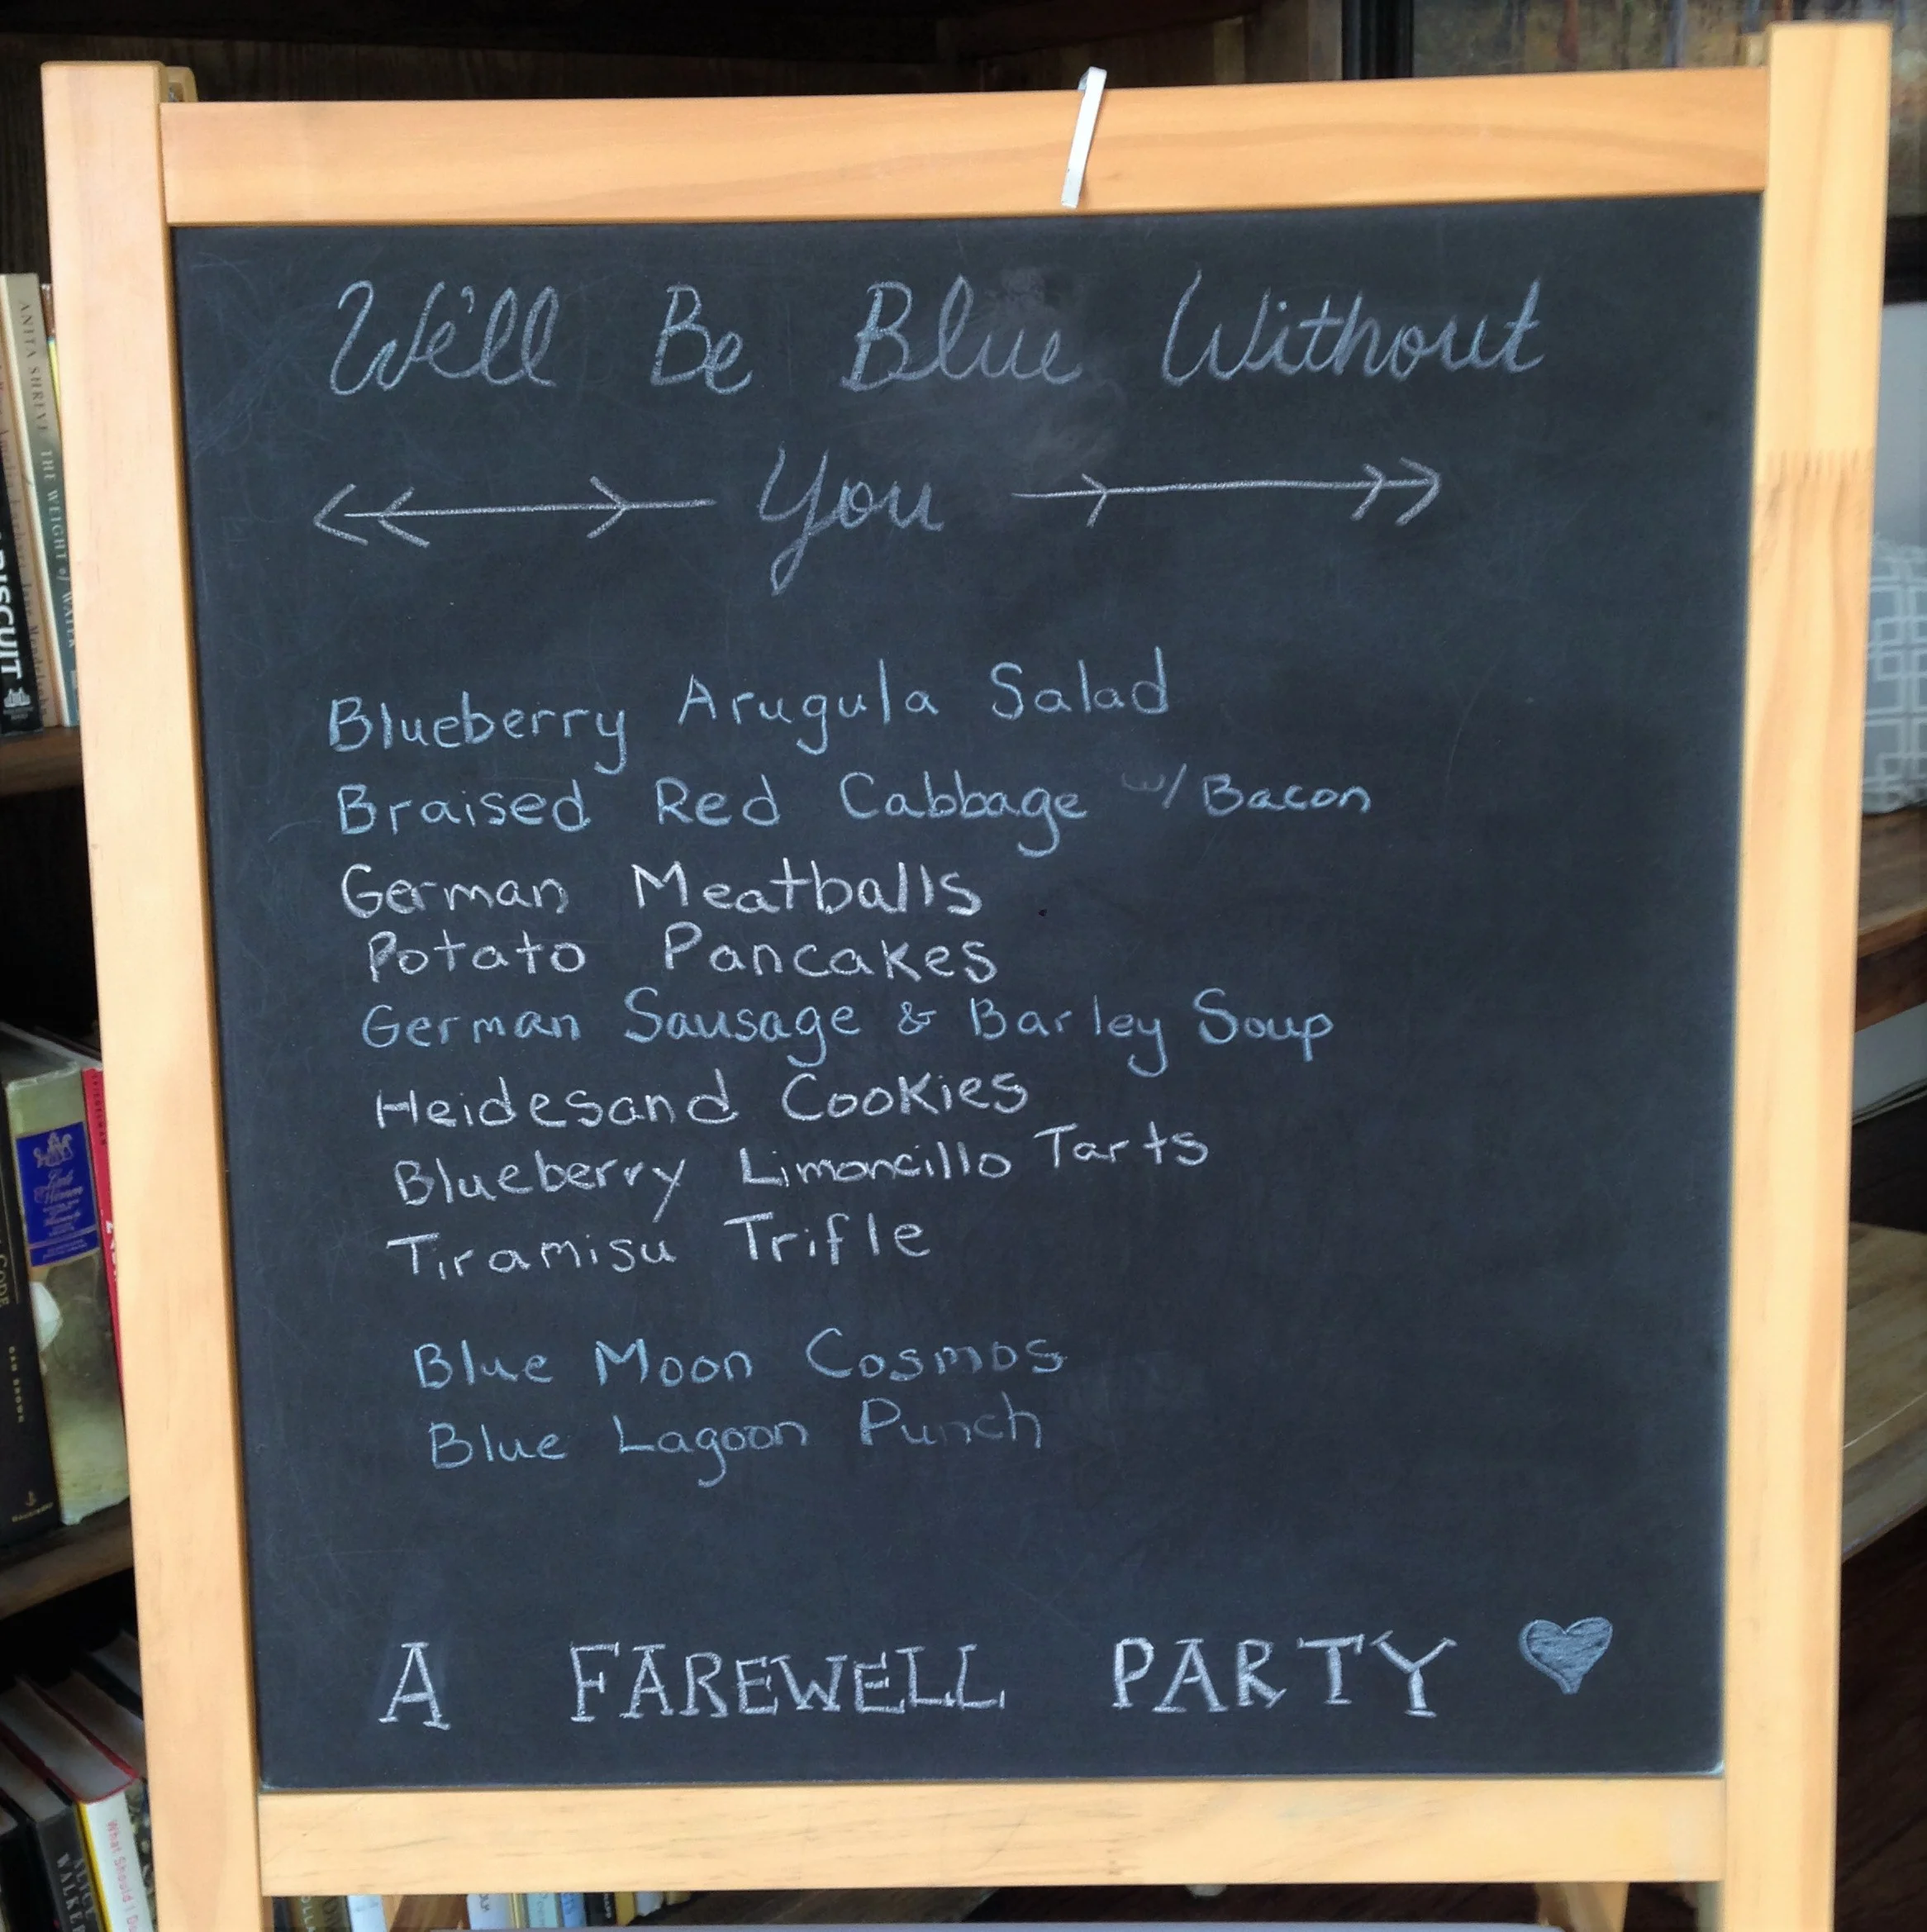 We'll Be Blue Without
You
Blueberry Arugula Salad
Braised Red Cabbage w/ Bacon
German Meatballs
Potato Pancakes
German Sausage & Barley Soup
Heidesand Cookies
Blueberry Limoncillo Tarts
Tiramisu Trifle
Blue Moon Cosmos
Blue Lagoon Punch
A FAREWELL PARTY
ANITA SHREVE THE WEIGHT of WATER
What Should I Do
ALICE
WALKER